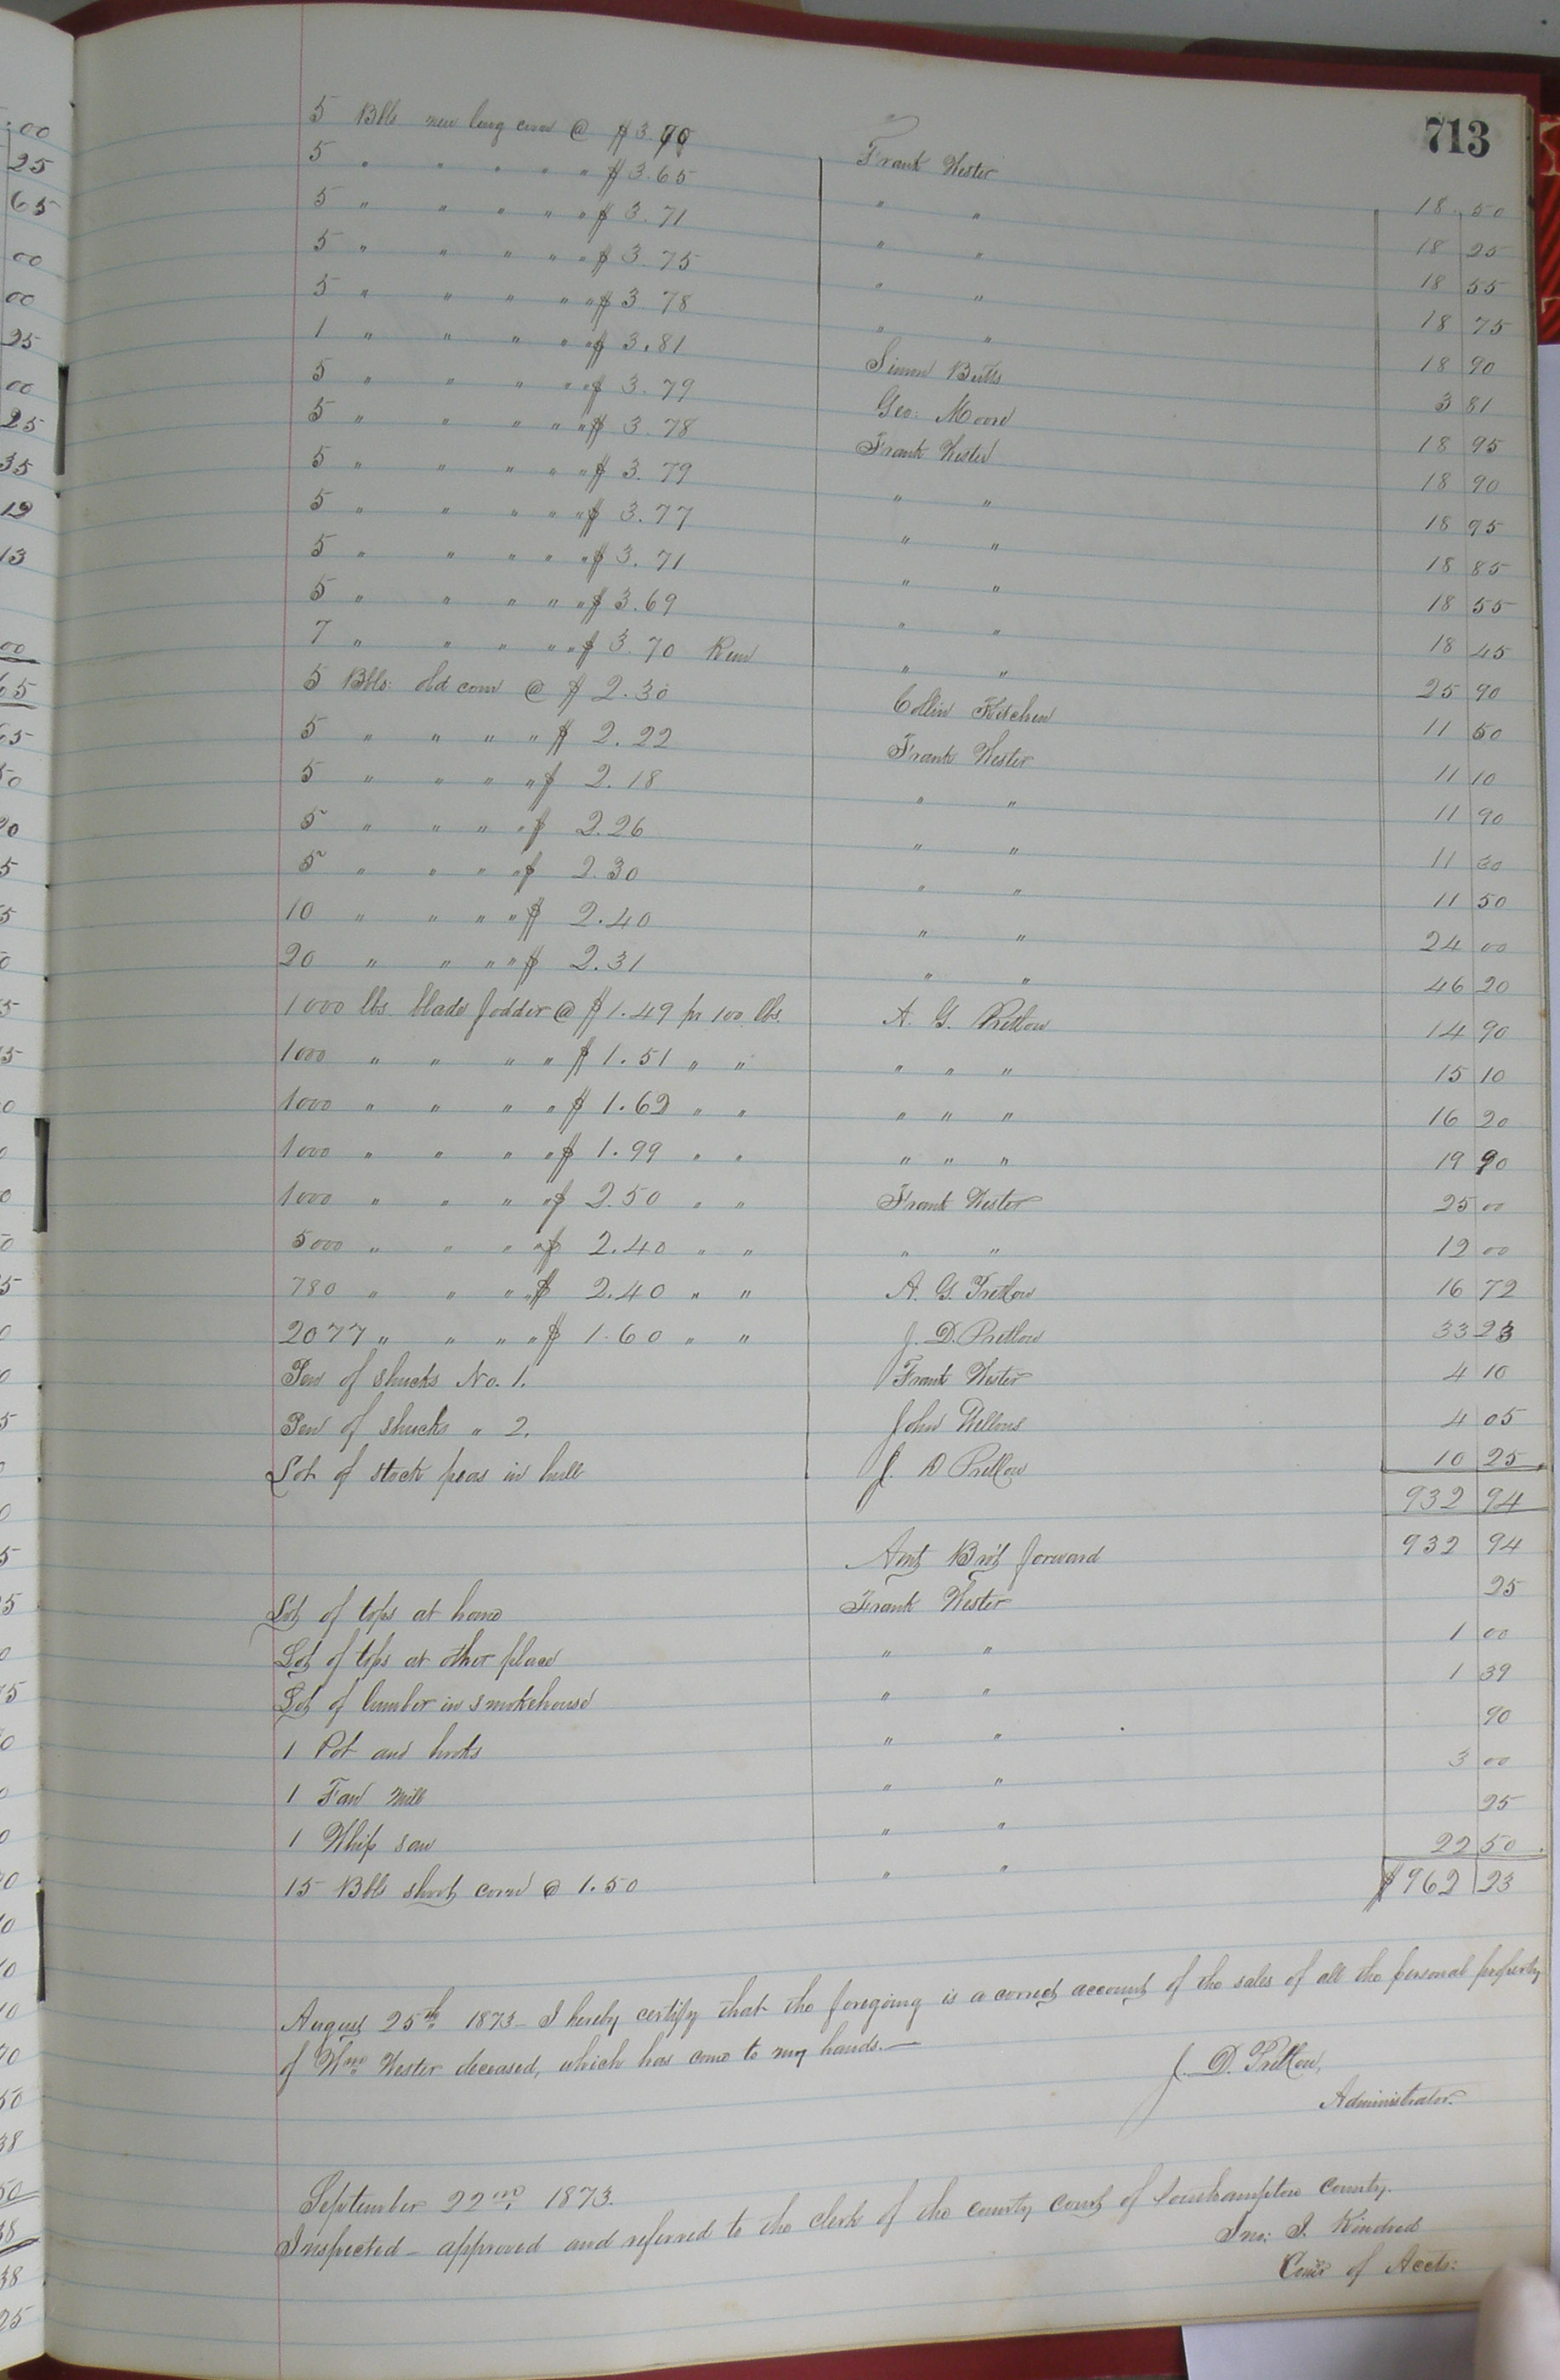 713
5 Bbls new long corn @ $3.70 Frank Wester 18 50
5 " " " " " $3.65 " " 18 25
5 " " " " " $3.71 " " 18 55
5 " " " " " $3.75 " " 18 75
5 " " " " " $3.78 " " 18 90
1 " " " " " $3.81 Simon Butts 3 81
5 " " " " " $3.79 Geo: Moore 18 95
5 " " " " " $3.78 Frank Wester 18 90
5 " " " " " $3.79 " " 18 95
5 " " " " " $3.77 " " 18 85
5 " " " " " $3.71 " " 18 55
5 " " " " " $3.69 " " 18 45
7 " " " " " $3.70 Rem " " 25 90
5 Bbls: old corn @ $2.30 Collin Kitchen 11 50
5 " " " " $2.22 Frank Wester 11 10
5 " " " " $2.18 " " 11 90
5 " " " " $2.26 " " 11 30
5 " " " " $2.30 " " 11 50
10 " " " " $2.40 " " 24 00
20 " " " " $2.31 " " 46 20
1000 lbs. blade fodder @ $1.49 pr 100 lbs. A. G. Pretlow 14 90
1000 " " " " $1.51 " " " " " 15 10
1000 " " " " $1.62 " " " " " 16 20
1000 " " " " $1.99 " " " " " 19 90
1000 " " " " $2.50 " " Frank Wester 25 00
5000 " " " " $2.40 " " " " 12 00
780 " " " " $2.40 " " A. G. Pretlow 16 72
2077 " " " " $1.60 " " J. D. Pretlow 33 23
Pen of shucks No. 1. Frank Wester 4 10
Pen of shucks " 2. John Wellons 4 05
Lot of stock peas in hull J. D Pretlow 10 25
932 94
Amt Bro't forward 932 94
Lot of tops at home Frank Wester 25
Lot of tops at other place " " 1 00
Lot of lumber in smokehouse " " 1 39
1 Pot and hooks " " 90
1 Fan mill " " 3 00
1 Whip saw " " 25
15 Bbls short corn @ 1.50 " " 22 50
$962 23
August 25th 1873 - I hereby certify that the foregoing is a correct account of the sales of all the personal property
of Wm Wester deceased, which has come to my hands.—
J. D. Pretlow,
Administrator.
September 22nd 1873.
Inspected - approved and referred to the clerk of the county court of Southampton county.
Jno: J. Kindred
Comr of Accts: